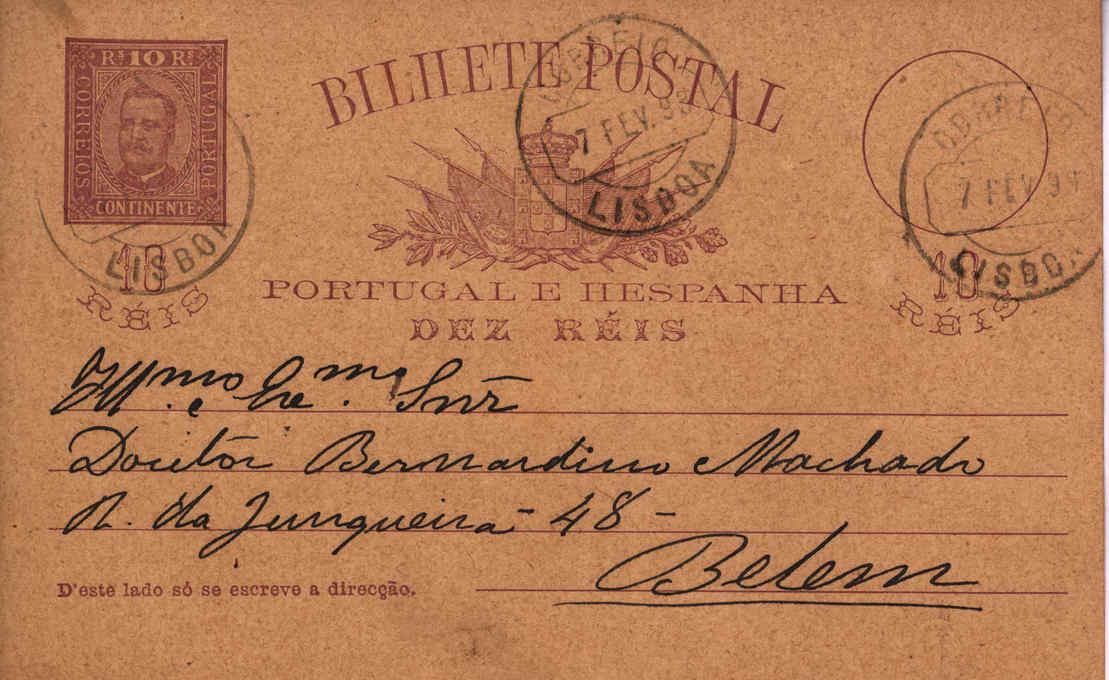 Rˢ 10 Rˢ
CORREIOS
PORTUGAL
CONTINENTE
10
RÉIS
BILHETE POSTAL
LISBOA
7 FEV. 93
LISBOA
PORTUGAL E HESPANHA
DEZ RÉIS
7 FEV
LISBOA
10
RÉIS
Illᵐᵒ. e Exᵐᵒ. Snr
Doutor Bernardino Machado
R. da Junqueira - 48 -
Belem
D'este lado só se escreve a direcção.